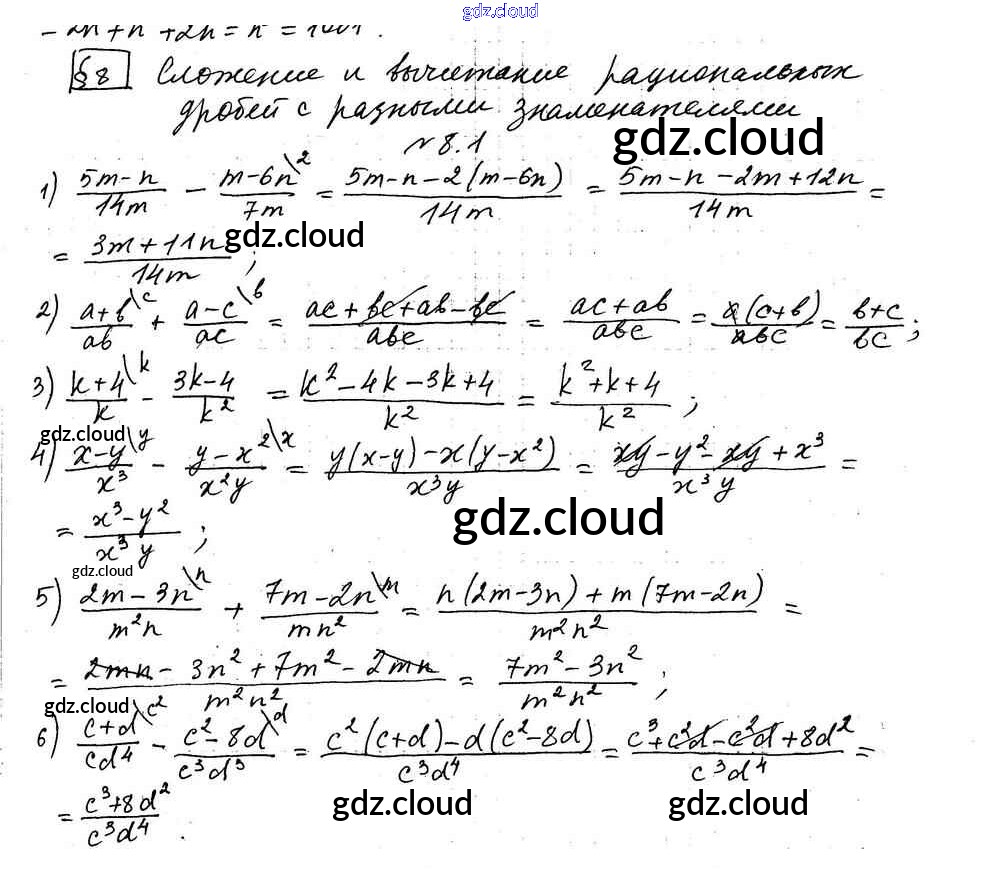 gdz.cloud
- 2n + n + 2n = n =
§8 Сложение и вычетание рациональных
дробей с разными знаменателями
№8.1
gdz.cloud
1) (5m-n)/(14m) - (m-6n)/(7m) \2 = (5m-n-2(m-6n))/(14m) = (5m-n-2m+12n)/(14m) =
= (3m+11n)/(14m) ; gdz.cloud
2) (a+b)/(ab) \c + (a-c)/(ac) \b = (ac+bc+ab-bc)/(abc) = (ac+ab)/(abc) = (a(c+b))/(abc) = (b+c)/(bc) ;
3) (k+4)/k \k - (3k-4)/k² = (k²-4k-3k+4)/k² = (k²+k+4)/k² ;
gdz.cloud
4) (x-y)/x³ \y - (y-x²)/(x²y) \x = (y(x-y)-x(y-x²))/(x³y) = (xy-y²-xy+x³)/(x³y) =
= (x³-y²)/(x³y) ; gdz.cloud
gdz.cloud
5) (2m-3n)/(m²n) \n + (7m-2n)/(mn²) \m = (n(2m-3n)+m(7m-2n))/(m²n²) =
= (2mn-3n²+7m²-2mn)/(m²n²) = (7m²-3n²)/(m²n²) ;
gdz.cloud
6) (c+d)/(cd⁴) \c² - (c²-8d)/(c³d³) \d = (c²(c+d)-d(c²-8d))/(c³d⁴) = (c³+c²d-c²d+8d²)/(c³d⁴) =
= (c³+8d²)/(c³d⁴) . gdz.cloud gdz.cloud